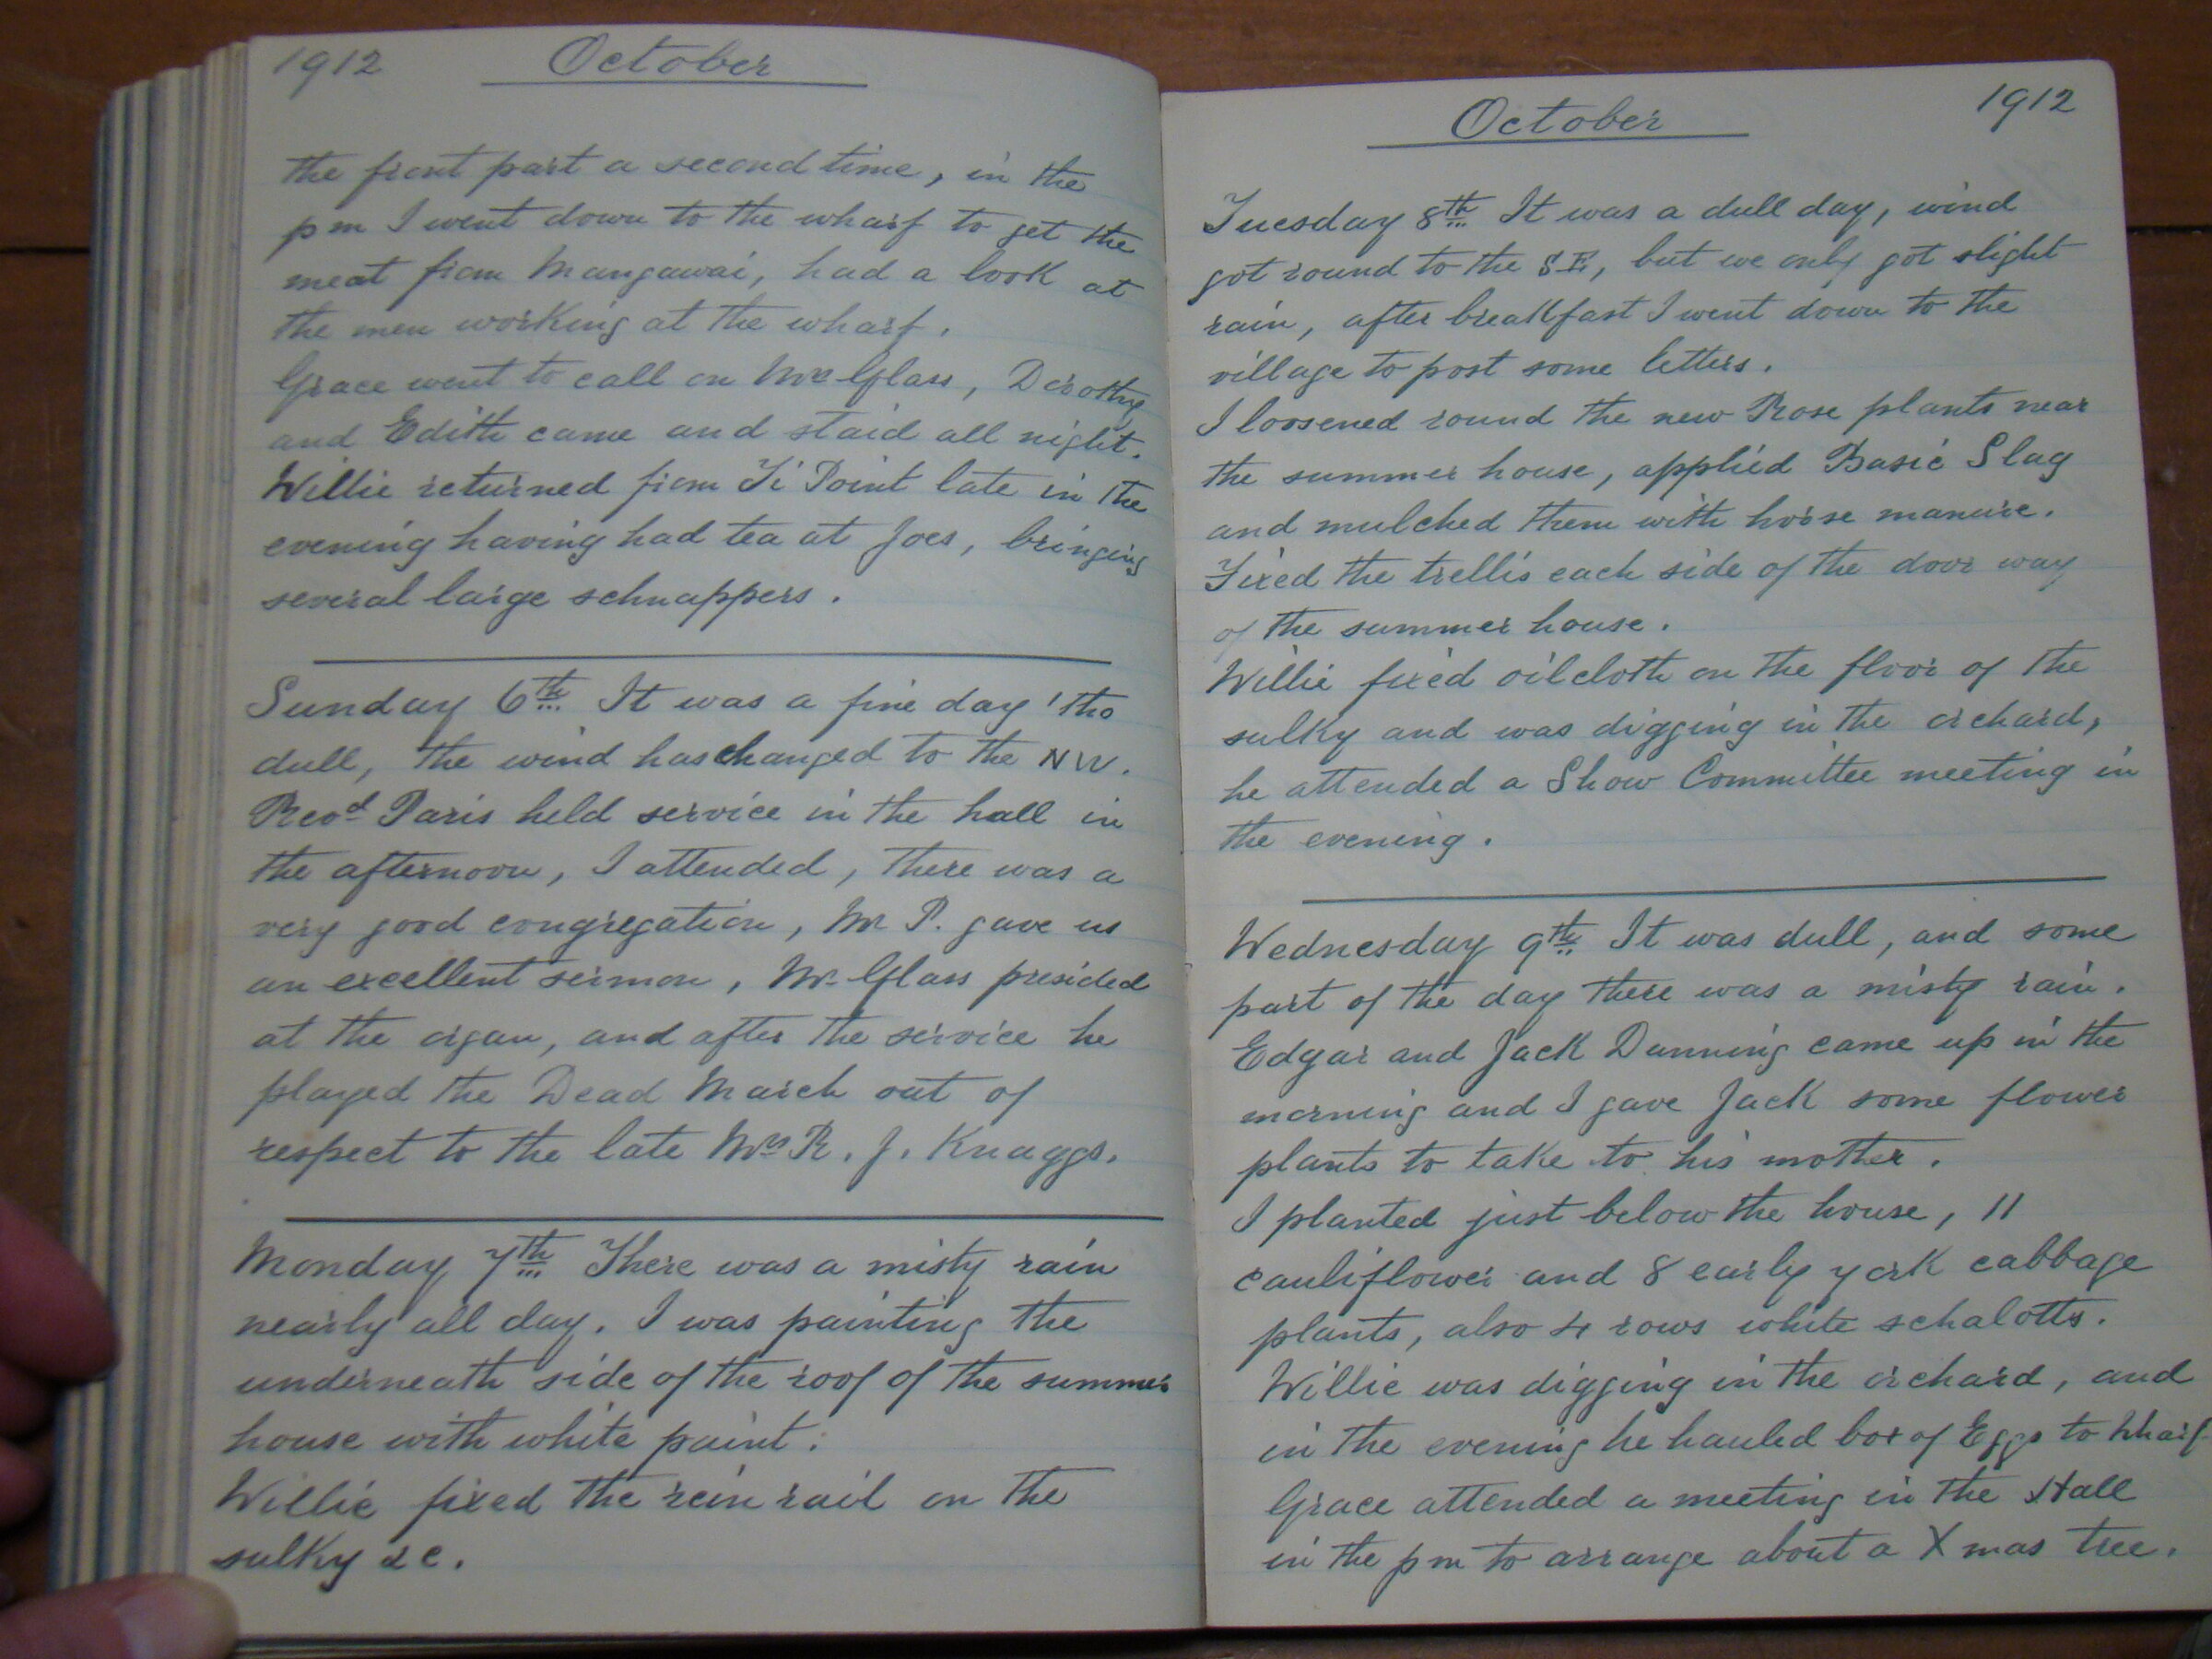 1912 October
the front part a second time, in the
pm I went down to the wharf to get the
meat from Mangawai, had a look at
the men working at the wharf.
Grace went to call on Mrs Glass, Dorothy
and Edith came and staid all night.
Willie returned from Ti Point late in the
evening having had tea at Joes, bringing
several large schnappers.
Sunday 6th It was a fine day 'tho
dull, the wind has changed to the NW.
Revd Paris held service in the hall in
the afternoon, I attended, there was a
very good congregation, Mr P. gave us
an excellent sermon, Mr Glass presided
at the organ, and after the service he
played the Dead March out of
respect to the late Mrs R. J. Knaggs.
Monday 7th There was a misty rain
nearly all day. I was painting the
underneath side of the roof of the summer
house with white paint.
Willie fixed the rein rail on the
sulky &c.
October 1912
Tuesday 8th It was a dull day, wind
got round to the SE, but we only got slight
rain, after breakfast I went down to the
village to post some letters.
I loosened round the new Rose plants near
the summer house, applied Basic Slag
and mulched them with horse manure.
Fixed the trellis each side of the door way
of the summer house.
Willie fixed oilcloth on the floor of the
sulky and was digging in the orchard,
he attended a Show Committee meeting in
the evening.
Wednesday 9th It was dull, and some
part of the day there was a misty rain.
Edgar and Jack Dunning came up in the
morning and I gave Jack some flower
plants to take to his mother.
I planted just below the house, 11
cauliflower and 8 early york cabbage
plants, also 4 rows white schalotts.
Willie was digging in the orchard, and
in the evening he hauled box of Eggs to Wharf
Grace attended a meeting in the Hall
in the pm to arrange about a Xmas tree.